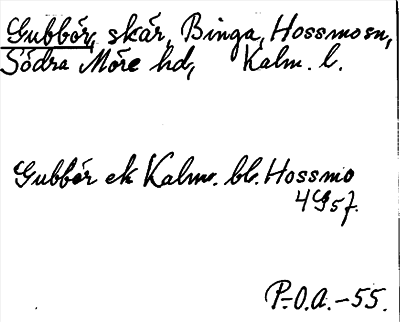 Gubbör, skär, Binga, Hossmo sn,
Södra Möre hd, Kalm. l.
Gubbör ek Kalm. bl. Hossmo
4G5f.
P.O.A.-55.